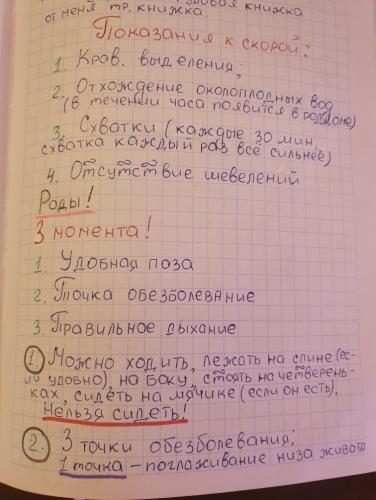 трудовая книжка
от неня тр. книжка.
Показания к скорой:
1. Кров. выделения;
2. Отхождение околоплодных вод
(в течении часа появится в роддоме)
3. Схватки (каждые 30 мин
схватка каждый раз всё сильнее)
4. Отсутствие шевелений
Роды!
3 момента!
1. Удобная поза
2. Точка обезболевание
3. Правильное дыхание
1. Можно ходить, лежать на спине (ес-
ли удобно), на боку, стоять на четверень-
ках, сидеть на мячике (если он есть).
Нельзя сидеть!
2. 3 точки обезболевания:
1 точка – поглаживание низа живота